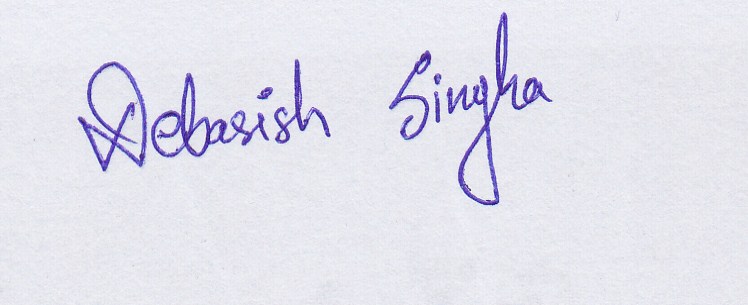 Debasish Singha